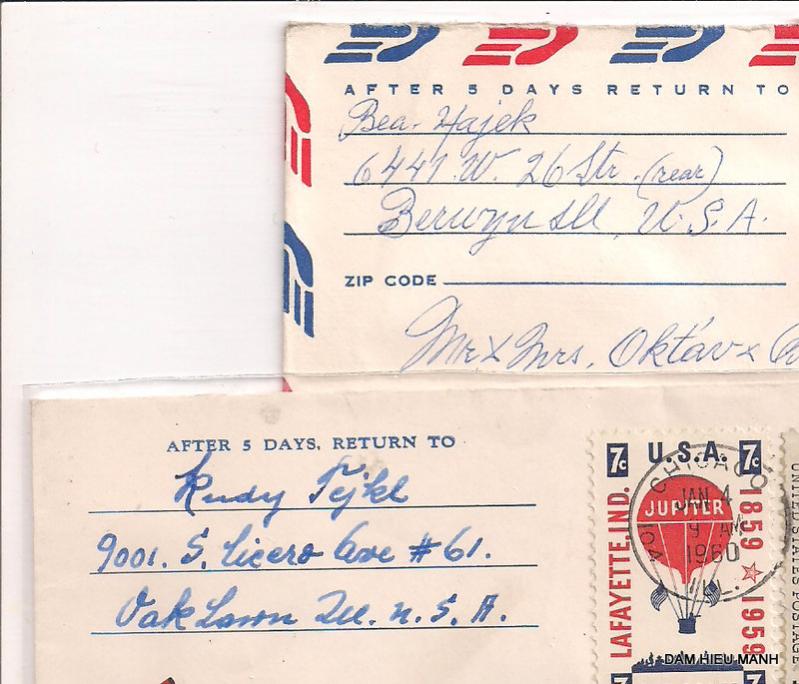 AFTER 5 DAYS RETURN TO
Bea. Hajek
6441 W. 26 Str. (rear)
Berwyn Ill, U.S.A.
ZIP CODE
Mr & Mrs. Oktav &
AFTER 5 DAYS, RETURN TO
Rudy Fejkl
9001. S. Cicero Ave # 61.
Oak Lawn Ill. U.S.A.
7c U.S.A. 7c
LAFAYETTE, IND.
JUPITER
1859 1959
CHICAGO
JAN 4
9 AM
1960
ILL.
UNITED STATES POSTAGE
DAM HIEU MANH